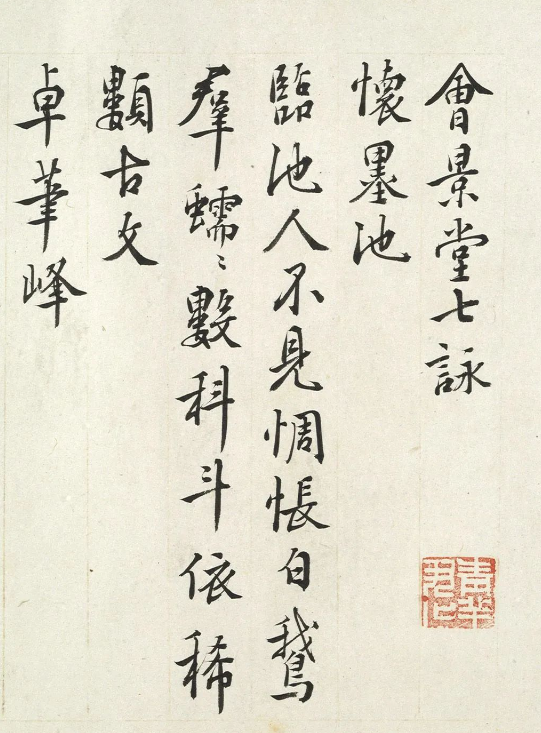 會景堂七詠
懷墨池
臨池人不見惆悵白鵝
羣蠕〻數科斗依稀
類古文
卓筆峰